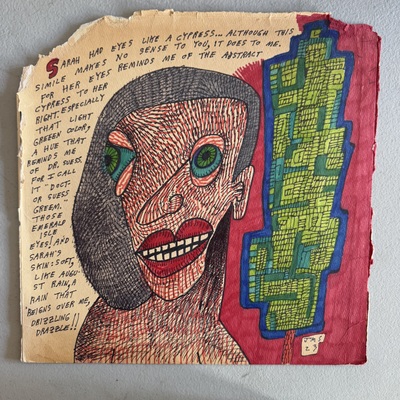 SARAH HAD EYES LIKE A CYPRESS... ALTHOUGH THIS
SIMILE MAKES NO SENSE TO YOU, IT DOES TO ME.
FOR HER EYES REMINDS ME OF THE ABSTRACT
CYPRESS TO HER
RIGHT: ESPECIALLY
THAT LIGHT
GREEEN COLOR,
A HUE THAT
REMINDS ME
OF DR. SUESS
FOR I CALL
IT "DOCT-
OR SUESS
GREEM."
THOSE
EMERALD
ISLE
EYES! AND
SARAH'S
SKIN: SOFT,
LIKE AUGU-
ST RAIN, A
RAIN THAT
BEIGNS OVER ME,
DRIZZLING
DRAZZLE!!
JAS
23